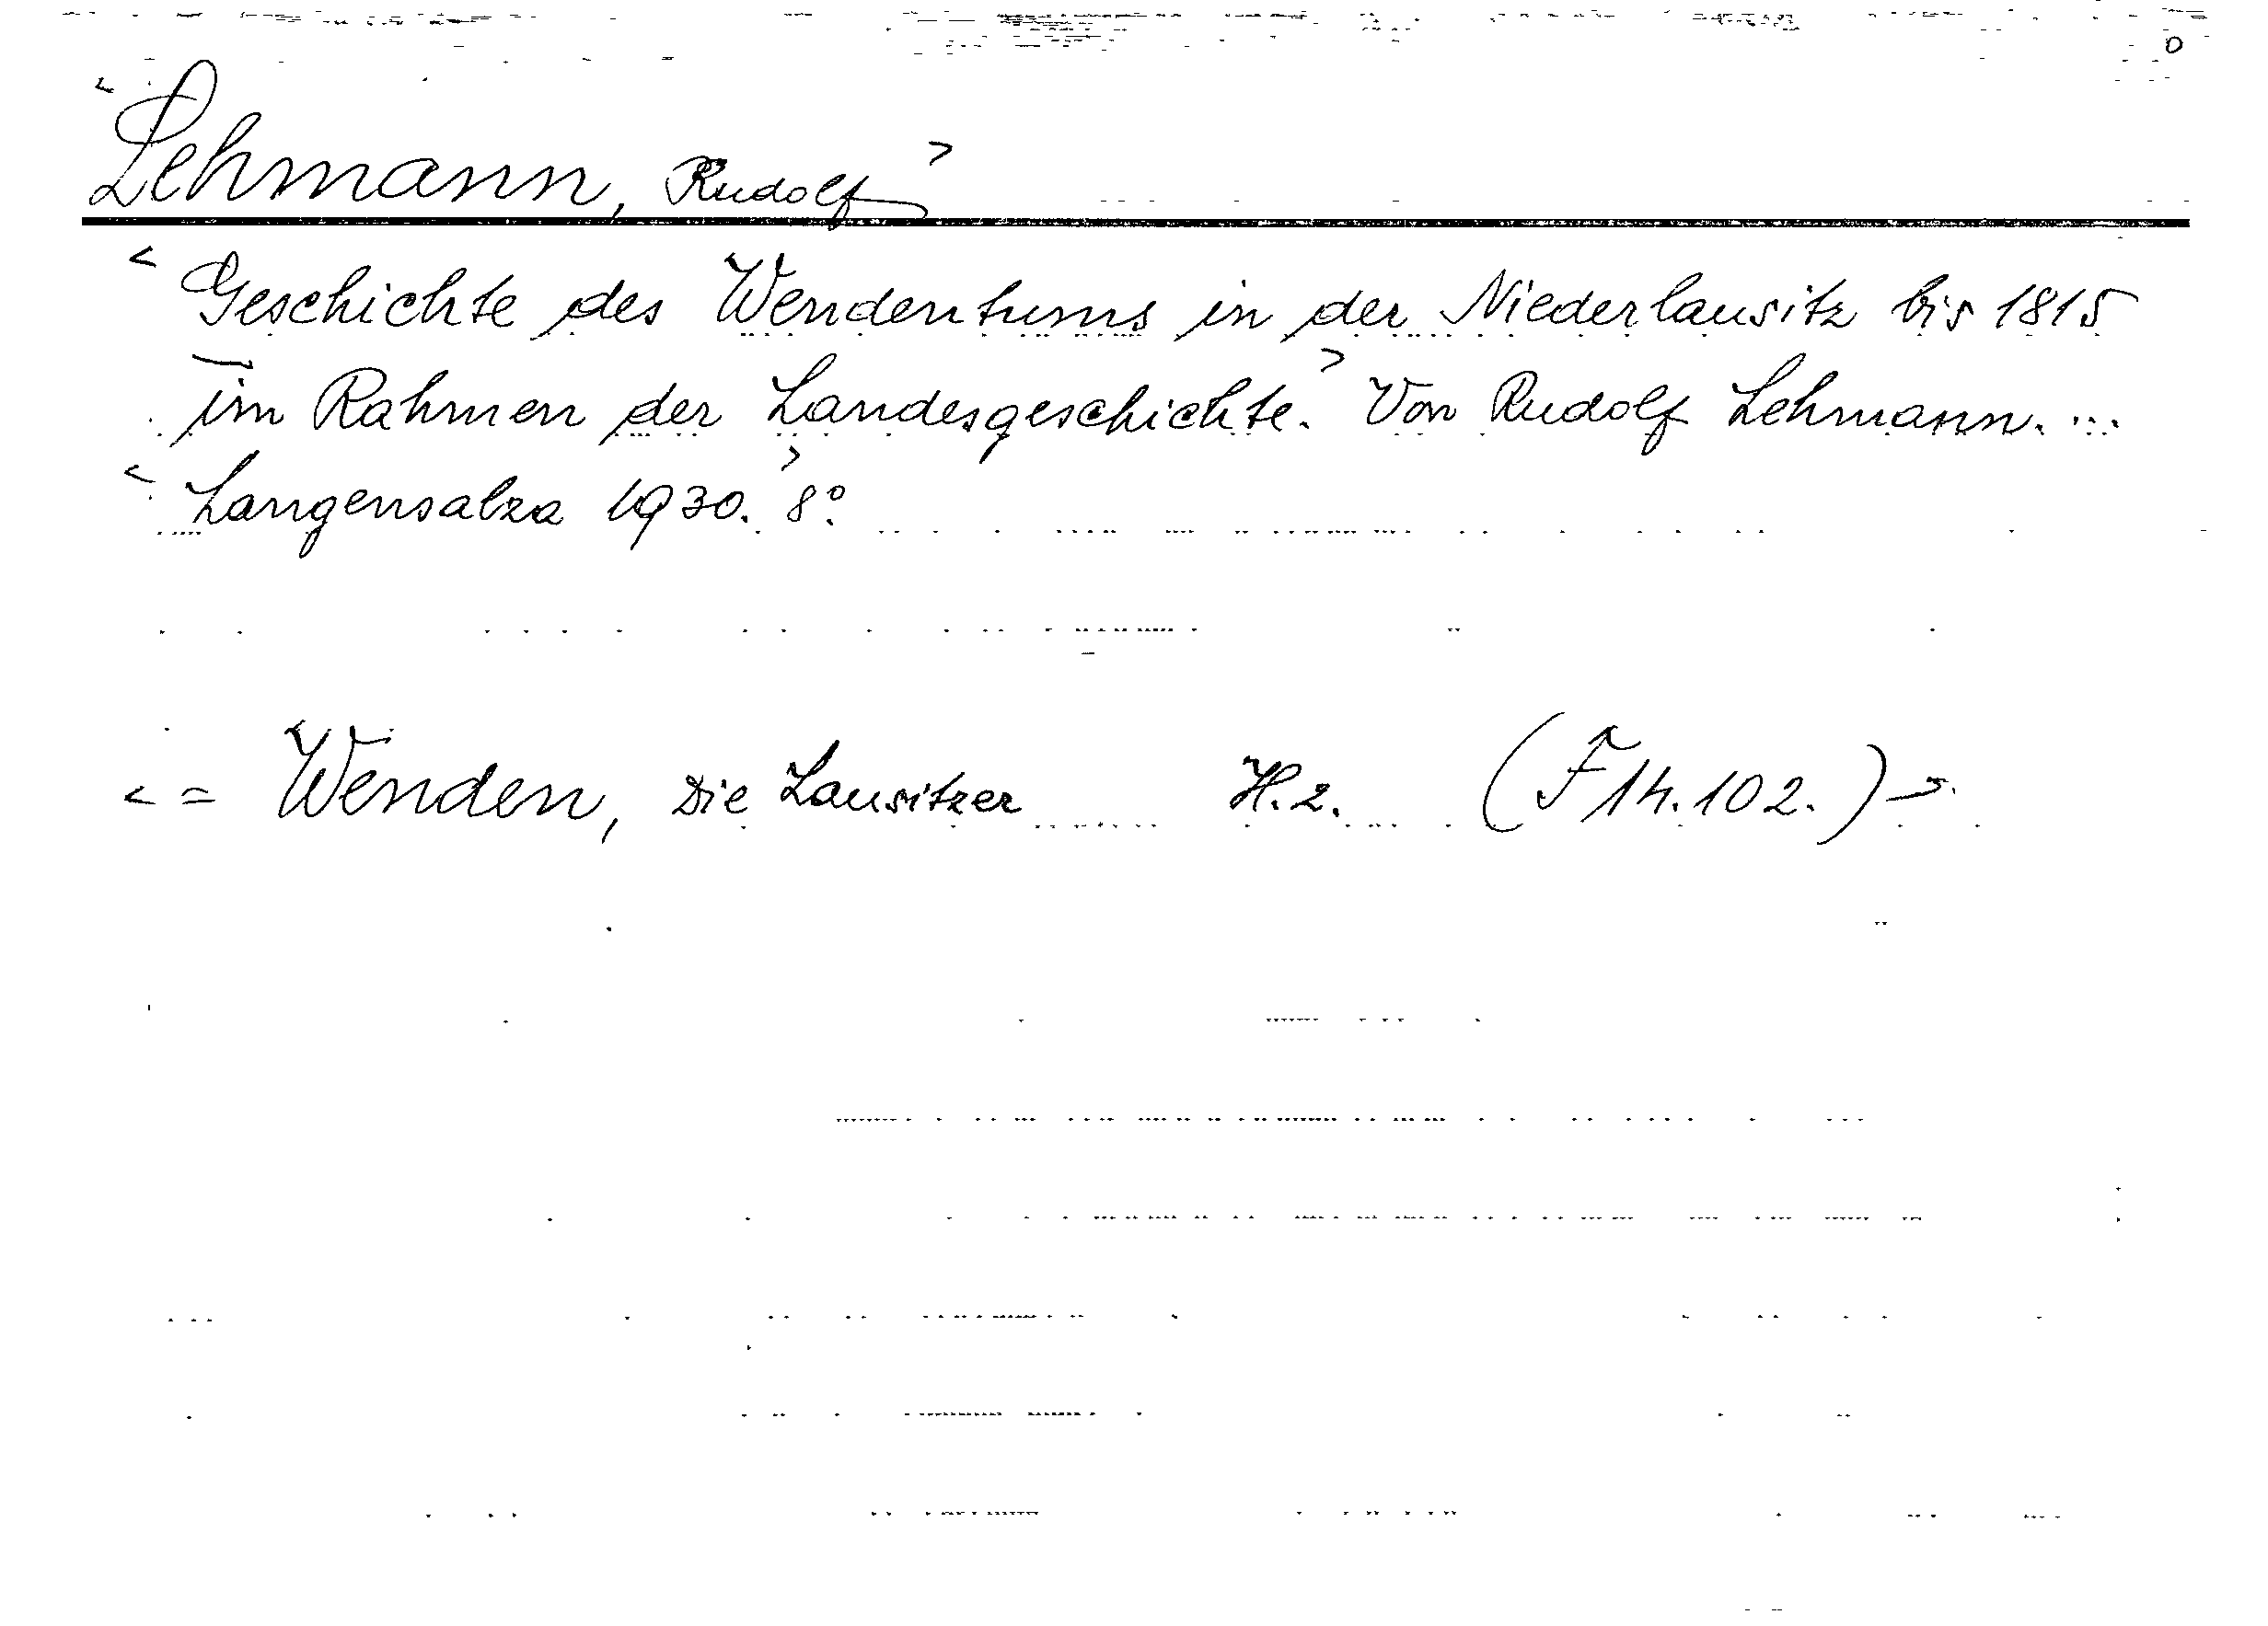 <Lehmann, Rudolf>
<Geschichte des Wendentums in der Niederlausitz bis 1815
im Rahmen der Landesgeschichte.> Von Rudolf Lehmann. ...
<Langensalza 1930.> 8°.
<= Wenden, Die Lausitzer H. 2. (F 14. 102.)>